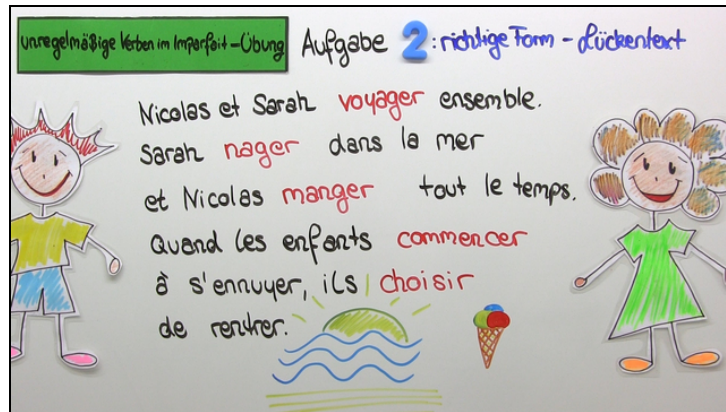 unregelmäßige Verben im Imparfait - Übung
Aufgabe 2: richtige Form - Lückentext
Nicolas et Sarah voyager ensemble.
Sarah nager dans la mer
et Nicolas manger tout le temps.
Quand les enfants commencer
à s'ennuyer, ils choisir
de rentrer.